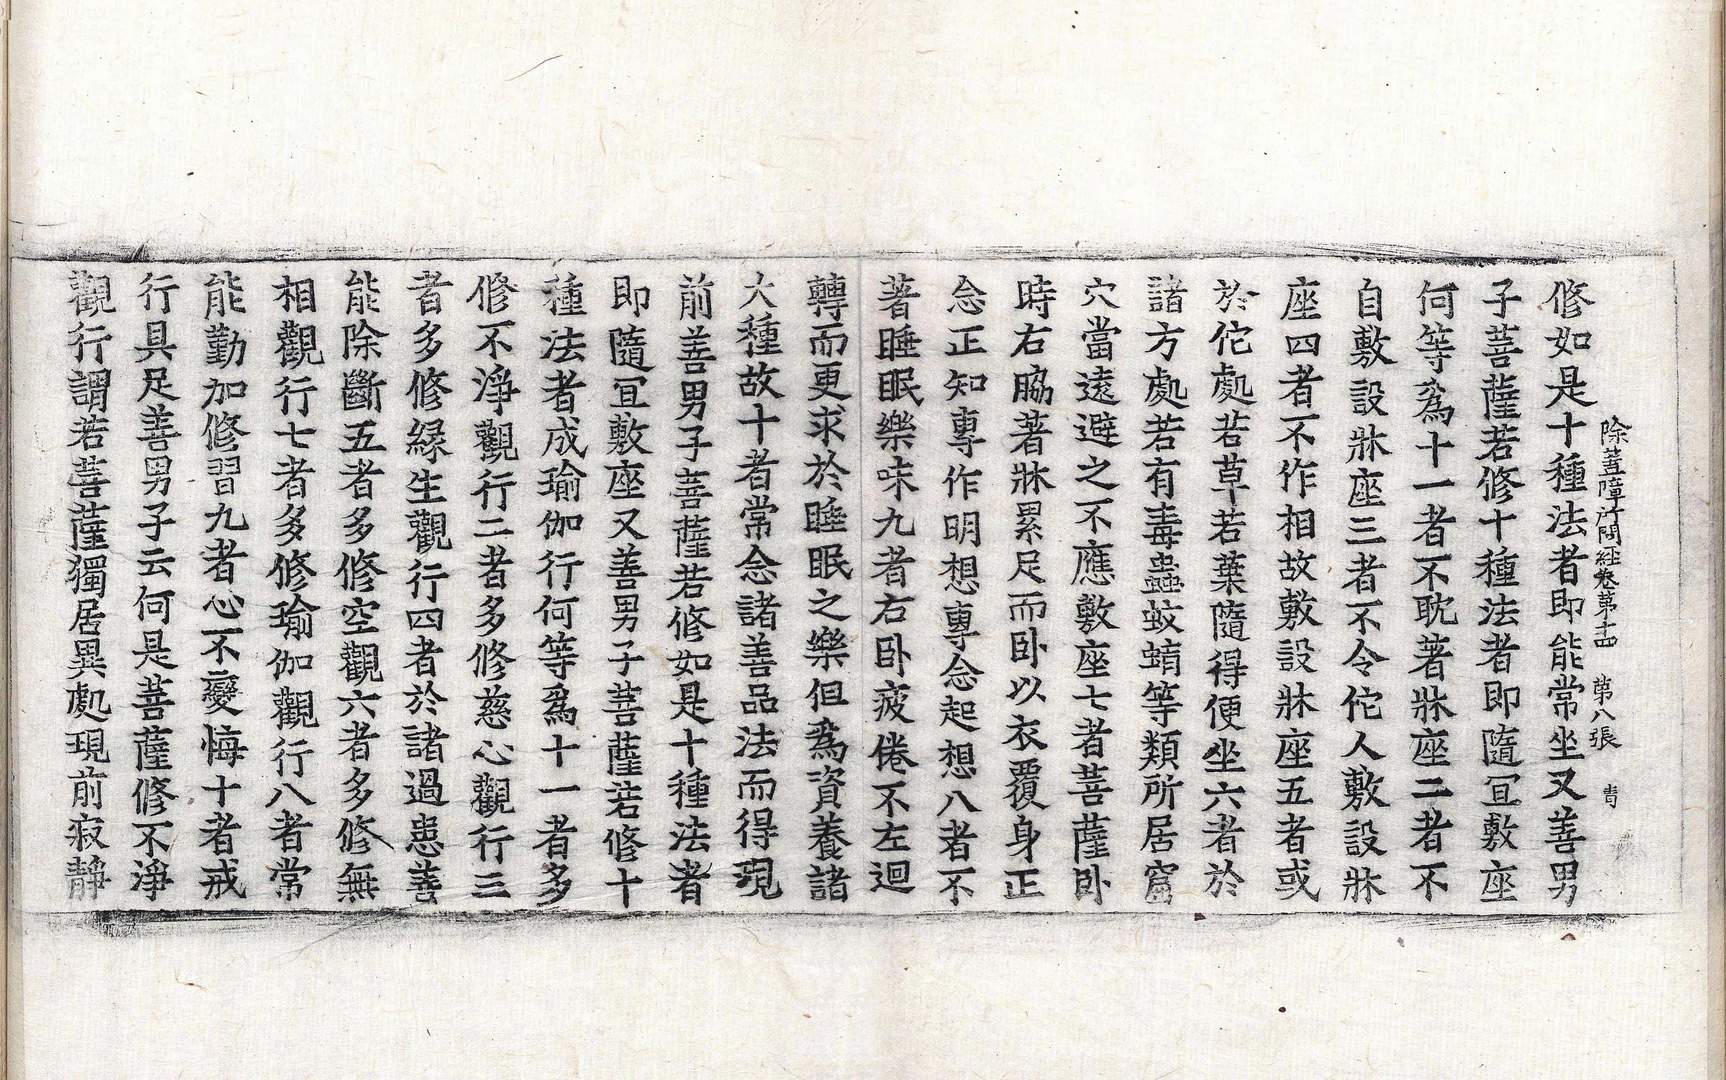 除蓋障所問経卷第十四　第八張　靑
修如是十種法者即能常坐又善男
子菩薩若修十種法者即隨冝敷座
何等爲十一者不耽著牀座二者不
自敷設牀座三者不令佗人敷設牀
座四者不作相故敷設牀座五者或
於佗處若草若葉隨得便坐六者於
諸方處若有毒蟲蚊蝱等類所居窟
穴當遠避之不應敷座七者菩薩卧
時右脇著牀累足而卧以衣覆身正
念正知專作明想專念起想八者不
著睡眠樂味九者右卧疲倦不左迴
轉而更求於睡眠之樂但爲資養諸
大種故十者常念諸善品法而得現
前善男子菩薩若修如是十種法者
即隨冝敷座又善男子菩薩若修十
種法者成瑜伽行何等爲十一者多
修不淨觀行二者多修慈心觀行三
者多修縁生觀行四者於諸過患善
能除斷五者多修空觀六者多修無
相觀行七者多修瑜伽觀行八者常
能勤加修習九者心不變悔十者戒
行具足善男子云何是菩薩修不淨
觀行謂若菩薩獨居異處現前寂靜